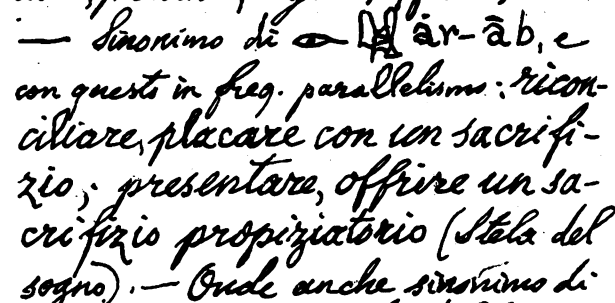 — Sinonimo di år-āb, e
con questo in freq. parallelismo: ricon-
ciliare, placare con un sacrifi-
zio; presentare, offrire un sa-
crifizio propiziatorio (Stela del
sogno). — Onde anche sinonimo di